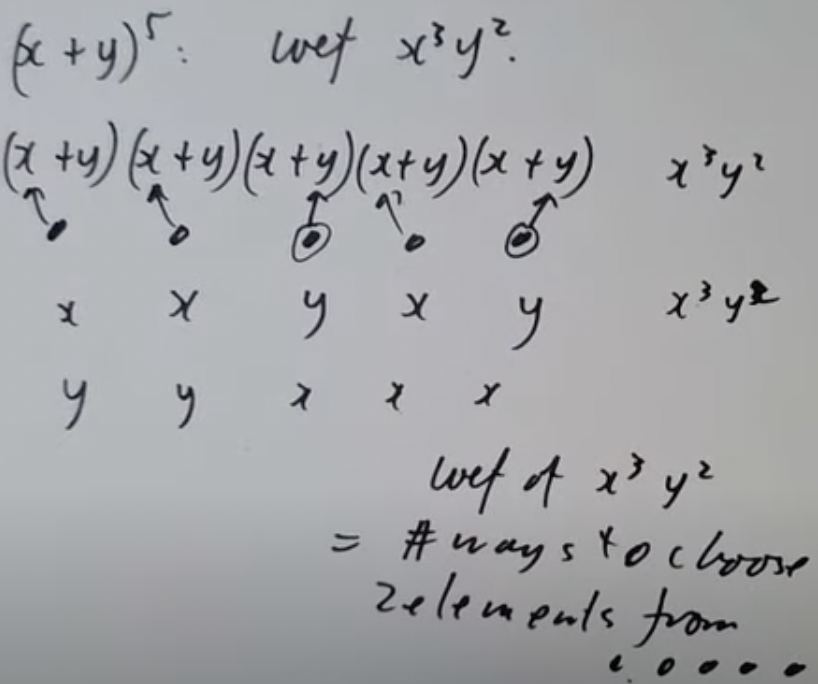 (x + y)⁵: coef x³y².
(x + y)(x + y)(x + y)(x + y)(x + y) x³y²
x x y x y x³y²
y y x x x
coef of x³y²
= # ways to choose
2 elements from